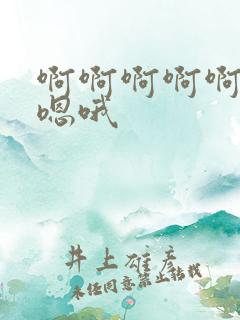 啊啊啊啊啊
嗯哦
井上雄彦
未经同意禁止转载